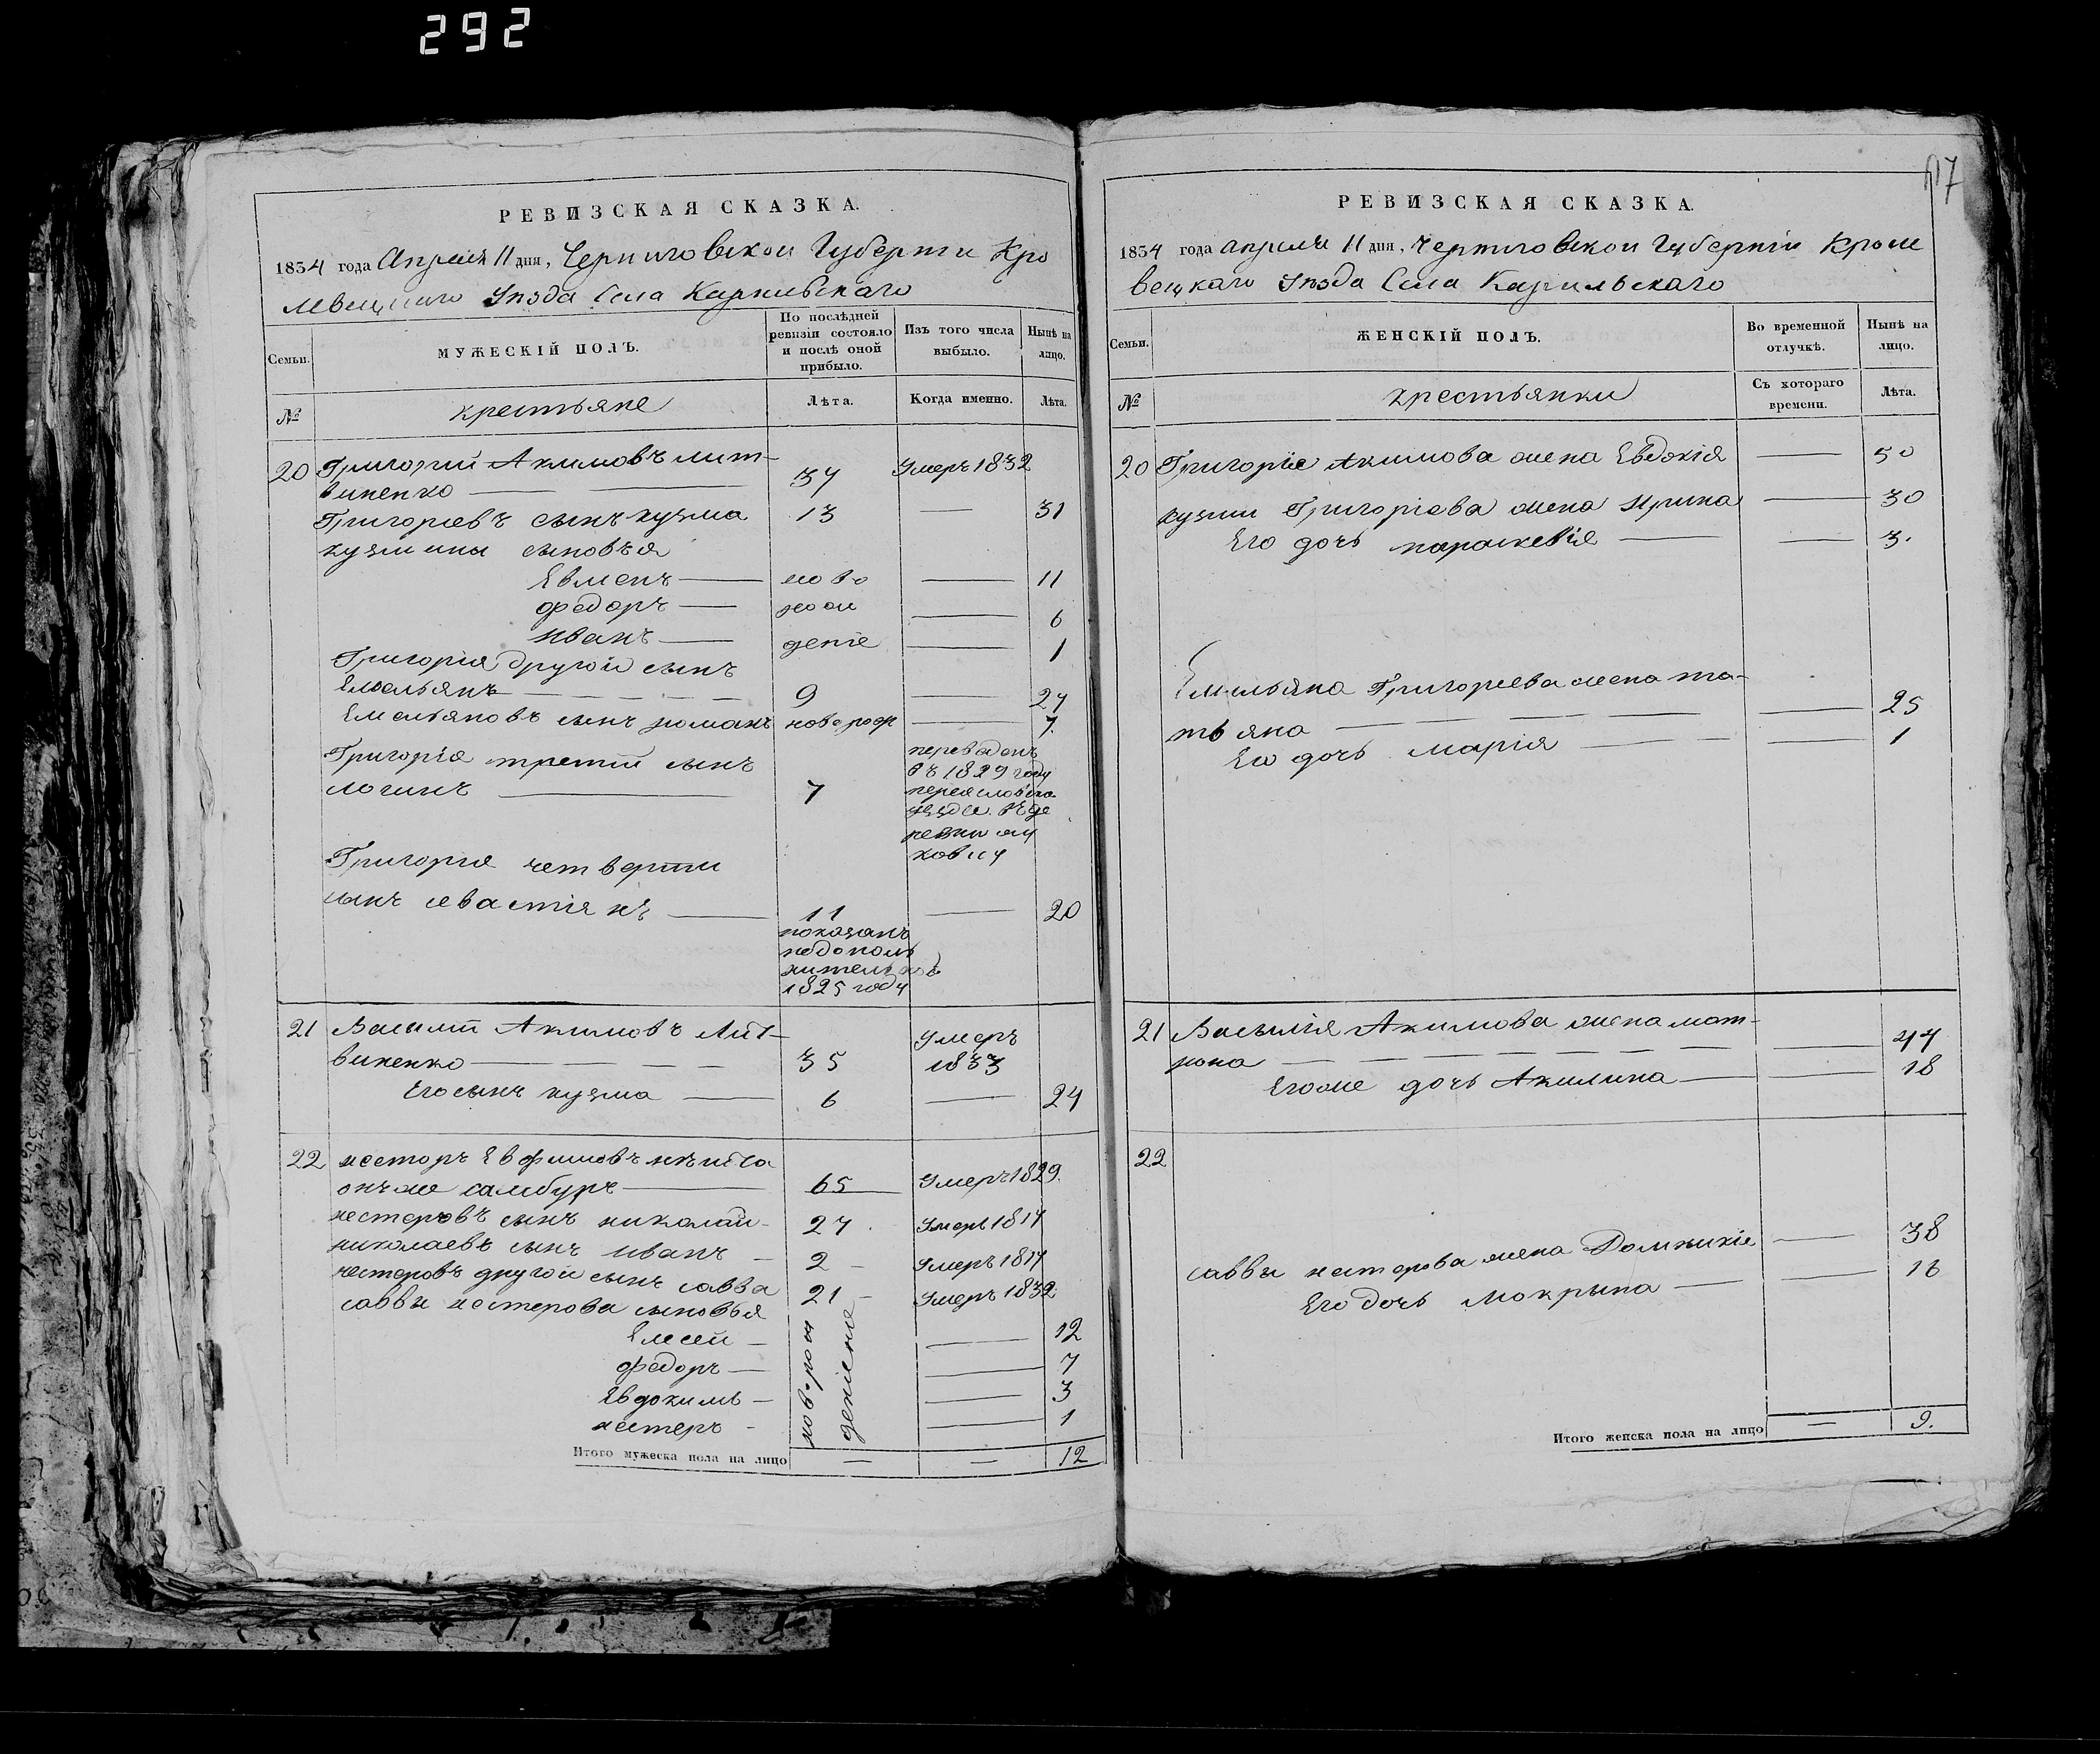 292
РЕВИЗСКАЯ СКАЗКА.
1834 года Апреля 11 дня, Черниговской Губернии Кро
левецкого Уѣзда Села Карильскаго
Семьи.
МУЖЕСКІЙ ПОЛЪ.
По послѣдней ревизіи состояло и послѣ оной прибыло.
Изъ того числа выбыло.
Нынѣ на лицо.
№
крестьяне
Лѣта.
Когда именно.
Лѣта.
20 Григорий Акимовъ лит-
виненко 34 Умеръ 1832
Григориевъ сынъ кузма 13 — 31
кузмины сыновья
Евменъ — ново — 11
федоръ — рож — 6
иванъ — дение — 1
Григория другой сынъ
Емельянъ 9 — 24
Емельяновъ сынъ романъ новорож — 7.
Григорія третий сынъ
логинъ — 7
переведенъ
въ 1829 году
переяславска
уезда. въ де
ревню
ковку
Григория четверти
сынъ севастіянъ — 11 — 20
показанъ
по дополн
нительной
1825 году
21 Василий Акимовъ Лит-
виненко — 35 Умеръ 1833
Его сынъ кузма — 6 — 24
22 несторъ Евфимовъ
онже самбуръ — 65 Умеръ 1829.
нестеровъ сынъ николай - 27. Умеръ 1817
николаевъ сынъ иванъ - 2 - Умеръ 1817
нестеровъ другой сынъ савва 21 - Умеръ 1832
саввы нестерова сыновья
Елесей — 12
федоръ — 7
Евдокимъ — 3
нестеръ - 1
новорож
дение
Итого мужеска пола на лицо — — 12
117
РЕВИЗСКАЯ СКАЗКА.
1834 года апреля 11 дня, Черниговской Губерніи Кроле
вецкаго Уѣзда Села Карильскаго
Семьи.
ЖЕНСКІЙ ПОЛЪ.
Во временной отлучкѣ.
Нынѣ на лицо.
№
крестьянки
Съ котораго времени.
Лѣта.
20 Григорія Акимова жена Евдокія — 50
кузми Григоріева жена Ирина — 30
Его дочь параскевія — — 3.
Емельяна Григореева жена та-
тьяна — — 25
Его дочь марія — — 1
21 Василія Акимова жена мат-
рона — — 44
Егоже дочь Акилина — — 18
22
саввы нестерова жена Домникіе — 38
Его дочь мокрына — — 18
Итого женска пола на лицо — 9.